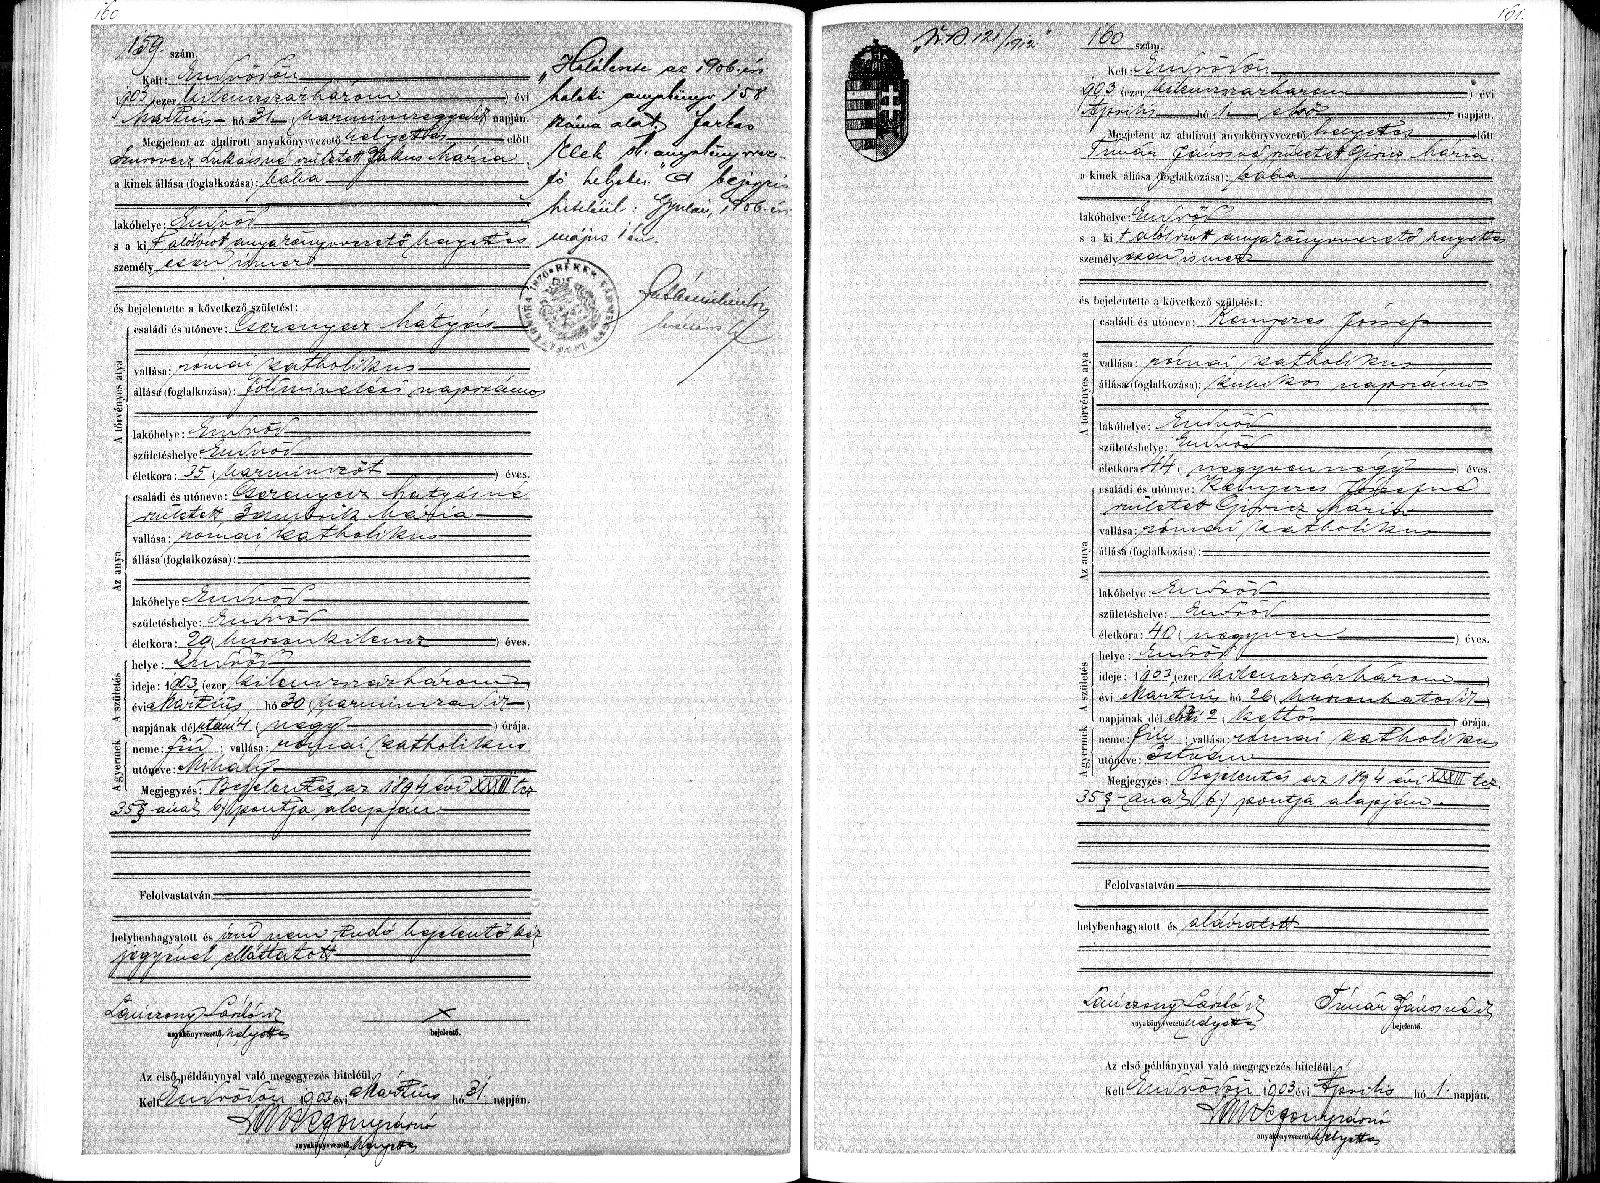 160
159. szám.
Kelt: Endrődön
1903 (ezer kilenczszázhárom) évi
Martius hó 31 (harminczegyedik napján.
Megjelent az alulirott anyakönyvvezető helyettes előtt
Lukácsné született Jakus Mária
a kinek állása (foglalkozása): bába
lakóhelye: Endrőd
s a kit alólirott anyakönyvvezető helyettes
személyesen ismer
és bejelentette a következő születést:
A törvényes atya
családi és utóneve: Cserenyecz Mátyás
vallása: római katholikus
állása (foglalkozása): földmivelési napszámos
lakóhelye: Endrőd
születéshelye: Endrőd
életkora: 35 (harminczöt) éves.
Az anya
családi és utóneve: Cserenyecz Mátyásné
született Mária
vallása: római katholikus
állása (foglalkozása):
lakóhelye: Endrőd
születéshelye: Endrőd
életkora: 29 (huszonkilencz) éves.
A születés
helye: Endrőd
ideje: 1903 (ezer kilenczszázhárom)
évi Martius hó 30 (harminczadik)
napjának dél utáni 4 (négy) órája.
A gyermek
neme: fiú; vallása: római katholikus
utóneve: Mihály
Megjegyzés: Bejelentés az 1894 évi XXXIII tcz
35 §-ának b) pontja alapján
Felolvastatván
helybenhagyatott és irni nem tudó bejelentő kéz
jegyével elláttatott
Lánczony László
anyakönyvvezető helyettes
x
bejelentő.
Az első példánynyal való megegyezés hiteléül.
Kelt Endrődön 1903 évi Martius hó 31 napján.
anyakönyvvezető helyettes
„Halálesete az 1906. évi
haláli anyakönyv 158
száma alatt Farkas
Elek s. anyakönyvveze-
tő helyettes." A bejegyzés
hiteléül: Gyulán, 1906. évi
május 1 én.
161.
121/1912
160 szám.
Kelt: Endrődön
1903 (ezer kilenczszázhárom) évi
Április hó 1. (első) napján.
Megjelent az alulirott anyakönyvvezető helyettes előtt
Tímár Jánosné született Giricz Mária
a kinek állása (foglalkozása): bába
lakóhelye: Endrőd
s a kit alólirott anyakönyvvezető helyettes
személyesen ismer
és bejelentette a következő születést:
A törvényes atya
családi és utóneve: Kenyeres József
vallása: római katholikus
állása (foglalkozása): kubikos napszámos
lakóhelye: Endrőd
születéshelye: Endrőd
életkora: 44 (negyvennégy) éves.
Az anya
családi és utóneve: Kenyeres Józsefné
született Giricz Mária
vallása: római katholikus
állása (foglalkozása):
lakóhelye: Endrőd
születéshelye: Endrőd
életkora: 40 (negyven) éves.
A születés
helye: Endrőd
ideje: 1903 (ezer kilenczszázhárom)
évi Martius hó 26 (huszonhatodik)
napjának dél előtti 2 (kettő) órája.
A gyermek
neme: fiu; vallása: római katholikus
utóneve: István
Megjegyzés: Bejelentés az 1894 évi XXXIII tcz.
35 §-ának b) pontja alapján
Felolvastatván
helybenhagyatott és aláiratott
Lánczony László
anyakönyvvezető helyettes
Tímár Jánosné
bejelentő.
Az első példánynyal való megegyezés hiteléül.
Kelt Endrődön 1903 évi Április hó 1. napján.
anyakönyvvezető helyettes